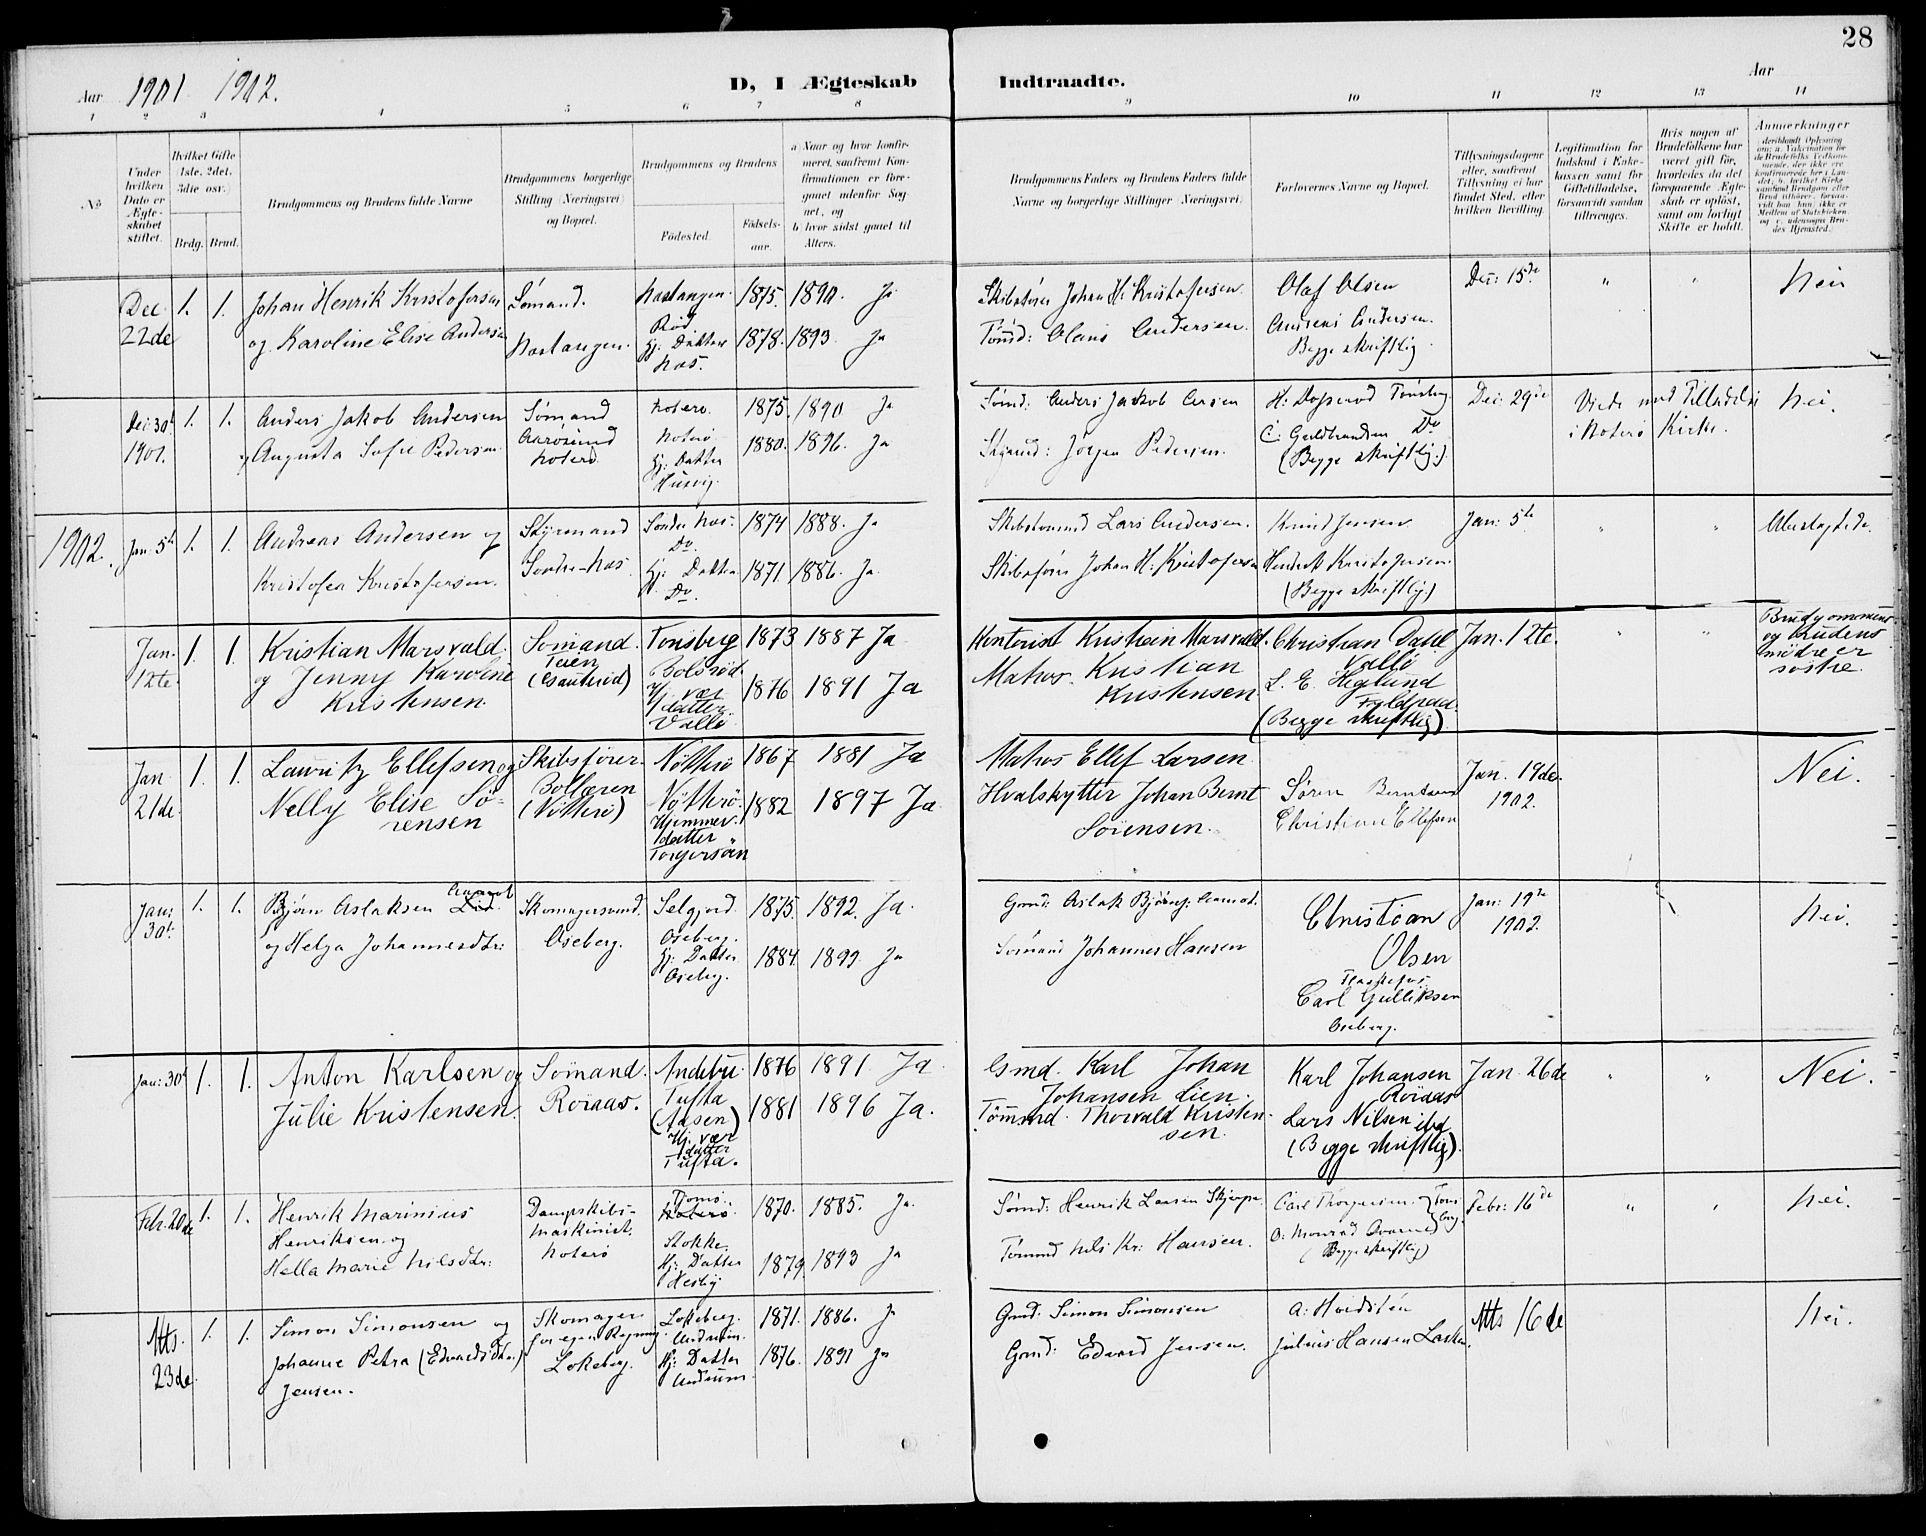 28
Aar 1901 1902.
D, I Ægteskab Indtraadte.
Aar
1 2 3 4 5 6 7 8 9 10 11 12 13 14
No
Under hvilken Dato er Ægteskabet stiftet.
Hvilket Gifte 1ste, 2det, 3die osv.)
Brdg. Brud.
Brudgommens og Brudens fulde Navne
Brudgommens borgerlige Stilling (Næringsvei) og Bopæl.
Brudgommens og Brudens
Fødested.
Fødselsaar.
a) Naar og hvor konfirmeret, saafremt Konfirmationen er foregaaet udenfor Sognet, og
b) hvor sidst gaaet til Alters.
Brudgommens Faders og Brudens Faders fulde Navne og borgerlige Stillinger (Næringsvei)
Forlovernes Navne og Bopæl.
Tillysningsdagene eller, saafremt Tillysning ei har fundet Sted, efter hvilken Bevilling.
Legitimation for Indskud i Enkekassen samt for Giftetilladelse, forsaavidt saadan tiltrænges.
Hvis nogen af Brudefolkene har været gift før, hvorledes da det foregaaende Ægteskab er opløst, samt om lovligt Skifte er holdt.
Anmerkninger
Dec 22de
1. 1.
Johan Henrik Kristofersen
og Karoline Elise Andersen
Sømand.
Nastangen.
Nastangen.
Rød
Hj: Datter
Nes.
1875. 1890. Ja
1878. 1893. Ja
Skibsfører Johan H. Kristofersen.
Tømd: Olaus Andersen.
Olaf Olsen
Andreas Andersen.
Begge skriftlig.
Dec: 15de
" "
Nei
Dec: 30te 1901.
1. 1.
Anders Jakob Andersen
og Augusta Sofie Pedersen
Sømand
Aarøsund
Noterø
Noterø.
Noterø
Hj: Datter
Husvig.
1875. 1890 Ja
1880. 1896. Ja
Sømd: Anders Jakob Arsen
Skymd: Jørgen Pedersen.
C: Guldbrandsen Do
(Begge skriftlig.)
Dec: 29de
Viede med Tilladelse
i Noterø Kirke.
Nei.
1902.
Jan: 5te
1. 1.
Andreas Andersen og
Kristofea Kristofersen.
Styrmand
Søndre-Nes
Søndre Nes.
Do.
Hj: Datter
Do.
1874 1888. Ja
1871 1886. Ja.
Skibstømmd Lars Andersen.
Skibsfører Johan H. Kristofersen
Knud Jensen
Hendrik Kristofersen
(Begge skriftlig.)
Jan: 5te
" "
Ubeslegtede.
Jan. 12te.
1. 1.
Kristian Marsvald
og Jenny Karoline
Kristensen.
Sømand.
Teien
Tønsberg
Bolsrød
Hj. vær
datter
Vallø
1873 1887 Ja
1876 1891 Ja
Kontorist Kristian Marsvald.
Matros. Kristian
Kristensen
Christian Dahl
Vallø
L. E. Heglund
(Begge skriftlig).
Jan. 12te.
" "
Brudgommens
og brudens
mødre er
søstre.
Jan 21de.
1. 1.
Lauritz Ellefsen og
Nelly Elise Sø-
rensen
Skibsfører
Bollæren
(Nøtterø)
Nøtterø
Nøtterø.
Hjemmev.
datter
Torgersøen
1867 1881 Ja
1882 1897 Ja
Matros Ellef Larsen
Hvalskytter Johan Bernt
Sørensen.
Søren Berntsen
Christian Ellefsen
Jan. 19de.
1902.
Nei.
Jan: 30te
1. 1.
Bjørn Aslaksen Lid. Aamot
og Helga Johannesdtr:
Skomagersvend.
Oseberg.
Selgjord.
Oseberg.
Hj: Datter
Oseberg.
1875. 1892. Ja.
1884. 1899. Ja
Gmd: Aslak Bjørns: Aamot.
Sømand Johannes Hansen
Christian
Olsen
Carl Gulliksen
Oseberg.
Jan: 19de
1902.
Nei.
Jan: 30te
1. 1.
Anton Karlsen og
Julie Kristensen.
Sømand.
Røraas.
Andebu
Tufta
(Aasen)
Hj. vær
datter
Tufta.
1876 1891. Ja.
1881 1896 Ja.
Gmd. Karl Johan
Johansen Lien.
Tømmd. Thorvald Kristen-
sen.
Karl Johansen
Røraas
Lars Nilsen ibd
(Begge skriftlig).
Jan. 26de
" "
Nei.
Feb. 20de
1. 1.
Henrik Marinius
Henriksen og
Hella Marie Nilsdtr:
Dampskibs-
maskinist.
Noterø
Tjømø.
Noterø.
Stokke.
Hj: Datter
Hesby
1870. 1885. Ja.
1879. 1893 Ja
Sømd: Henrik Larsen
Tømmd Nils Kr: Hansen.
(Begge skriftlig)
Febr: 16de
" "
Nei.
Mts. 23de.
1. 1.
Simon Simonsen og
Johanne Petra (Edvardsdtr.)
Jensen.
Skomager
for egen Regning
Lokeberg.
Lokeberg.
Undrum.
Hj: Datter
Undrum.
1871. 1886. Ja
1876. 1891 Ja
Gmd: Simon Simonsen
Gmd: Edvard Jensen.
Julius Hansen
Mts 16de
Nei.